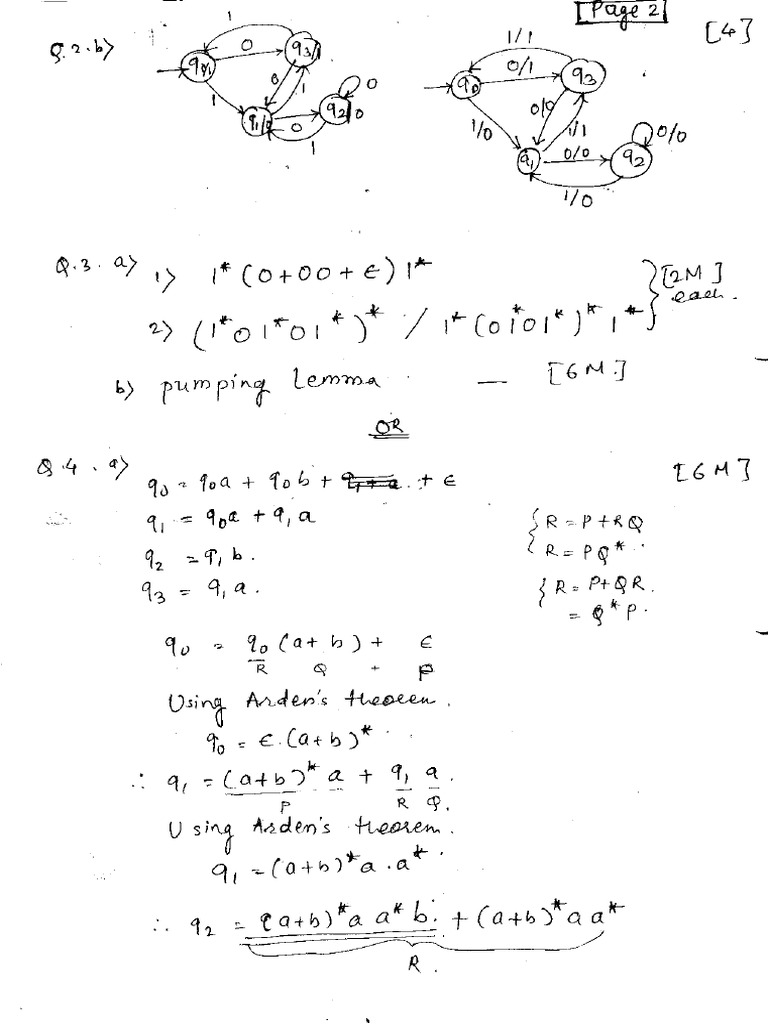 Page 2
[4]
Q.2.b)
1
0
q0/1
q3/1
0
1
1
0
q2/0
0
1
1/1
0/1
q0
q3
0/0
1/1
1/0
q1
0/0
q2
0/0
1/0
Q.3. a) 1) 1*(0+00+ε)1*
2) (1*01*01*)* / 1*(01*01*)*1*
[2M] each.
b) pumping lemma — [6M]
OR
Q.4. a) [6M]
q0 = q0a + q0b + q1+a + ε
q1 = q0a + q1a
q2 = q1b.
q3 = q1a.
{ R = P+RQ
R = PQ*
{ R = P+QR.
= Q*P.
q0 = q0(a+b) + ε
R Q + P
Using Arden's theorem.
q0 = ε.(a+b)*
∴ q1 = (a+b)*a + q1 a.
P R Q.
Using Arden's theorem.
q1 = (a+b)*a.a*
∴ q2 = (a+b)*a a*b. + (a+b)*a a*
R.